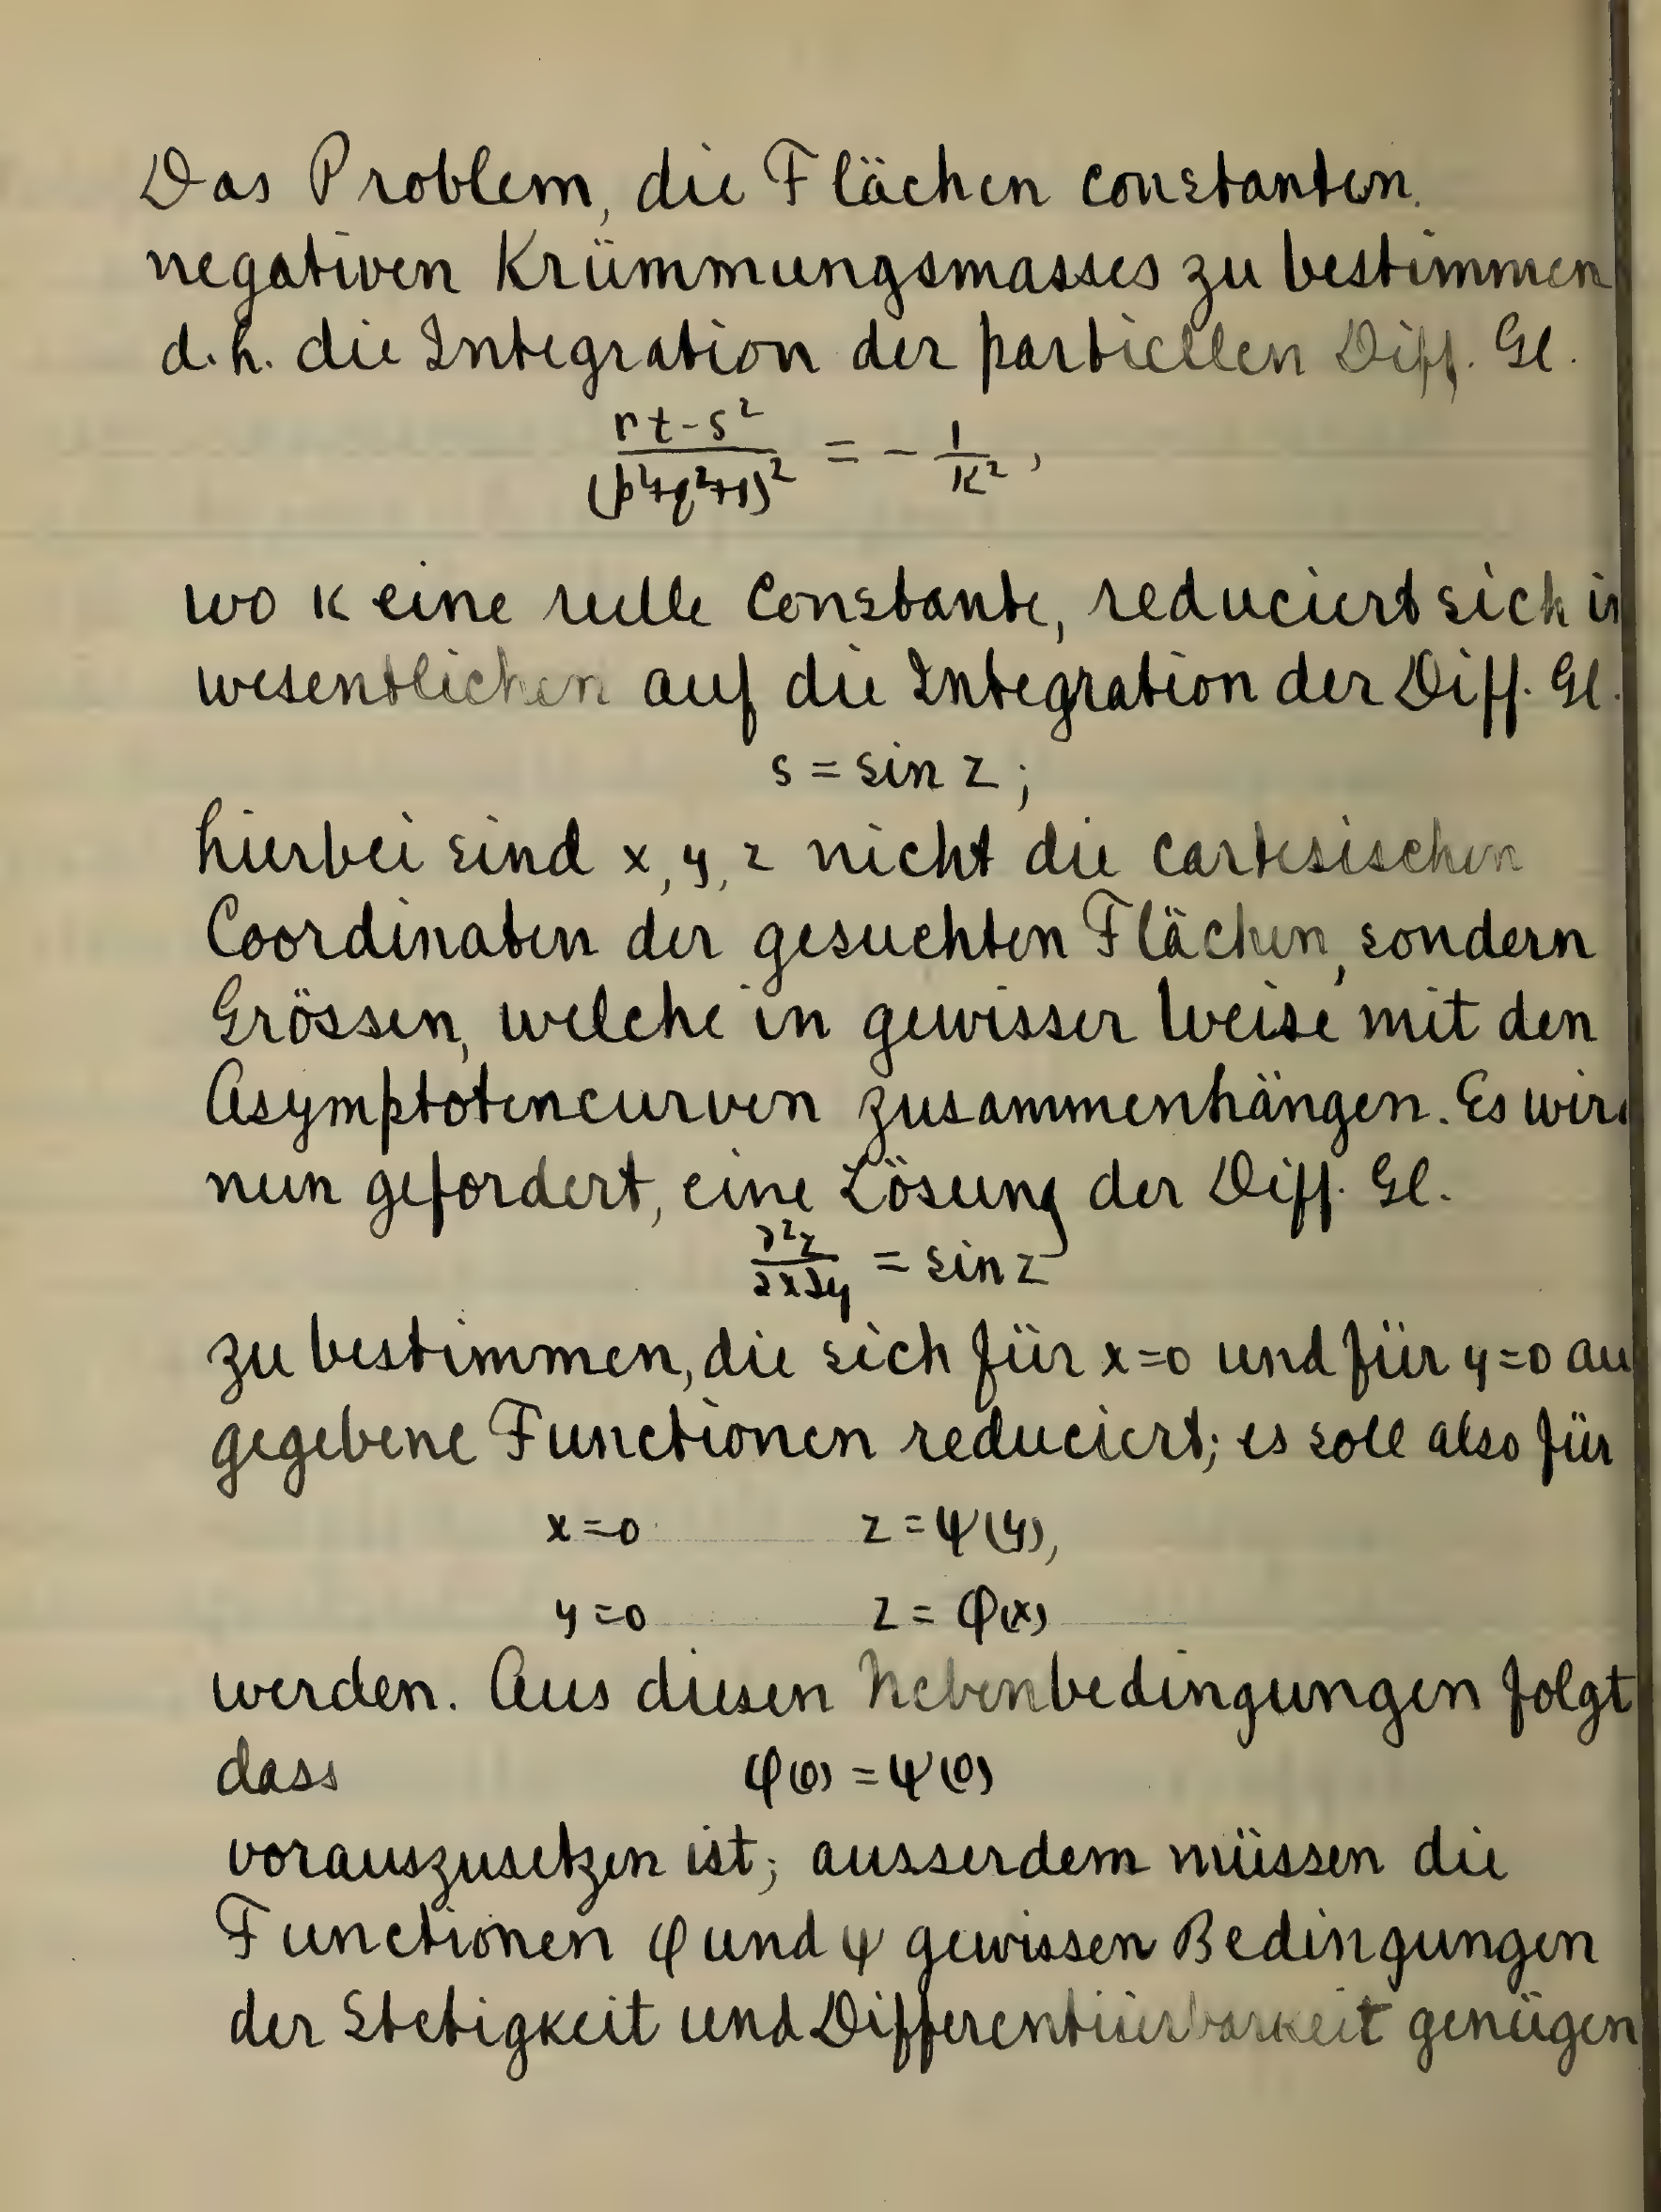 Das Problem, die Flächen constanten
negativen Krümmungsmasses zu bestimmen
d. h. die Integration der partiellen Diff. Gl.
(rt-s²)/(p²+q²+1)² = - 1/k²,
wo k eine relle Constante, reduciert sich
wesentlichen auf die Integration der Diff. Gl.
s = sin z;
hierbei sind x, y, z nicht die cartesischen
Coordinaten der gesuchten Flächen, sondern
Grössen, welche in gewisser Weise mit den
Asymptotencurven zusammenhängen. Es wird
nun gefordert, eine Lösung der Diff. Gl.
∂²z/∂x∂y = sin z
zu bestimmen, die sich für x=0 und für y=0 au
gegebene Functionen reduciert; es soll also für
x=0 z=ψ(y),
y=0 z=φ(x)
werden. Aus diesen Nebenbedingungen folgt
dass φ(0)=ψ(0)
vorauszusetzen ist; ausserdem müssen die
Functionen φ und ψ gewissen Bedingungen
der Stetigkeit und Differentiierbarkeit genügen